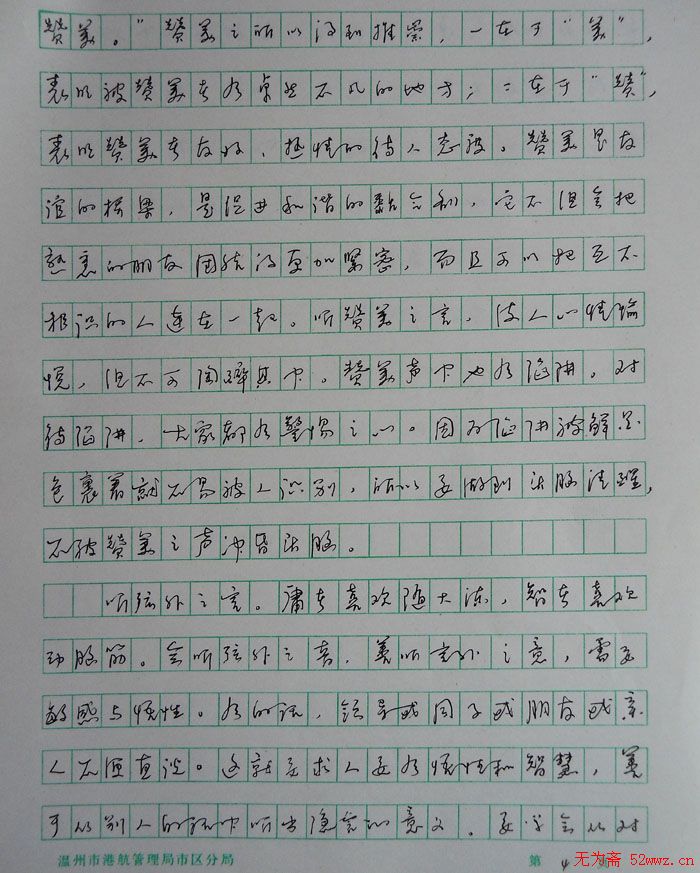 赞美。”赞美之所以得到推崇，一在于“美”，
表明被赞美者有卓然不凡的地方；二在于“赞”，
表明赞美者友好、热情的待人态度。赞美是友
谊的桥梁，是促进和谐的黏合剂，它不但会把
熟悉的朋友团结得更加紧密，而且可以把互不
相识的人连在一起。听赞美之言，使人心情愉
悦，但不可陶醉其中。赞美声中也有陷阱。对
待陷阱，大家都有警惕之心。因为陷阱被鲜花
包裹着就不易被人识别，所以要做到头脑清醒，
不被赞美之声冲昏头脑。
听弦外之言。庸者喜欢随大流，智者喜欢
动脑筋。会听弦外之音，善听言外之意，需要
敏感与悟性。有的话，领导或同事或朋友或亲
人不便直说。这就要求人要有悟性和智慧，善
于从别人的话中听出隐含的意义。要学会从对
温州市港航管理局市区分局 第 4 页
无为斋 52wwz.cn